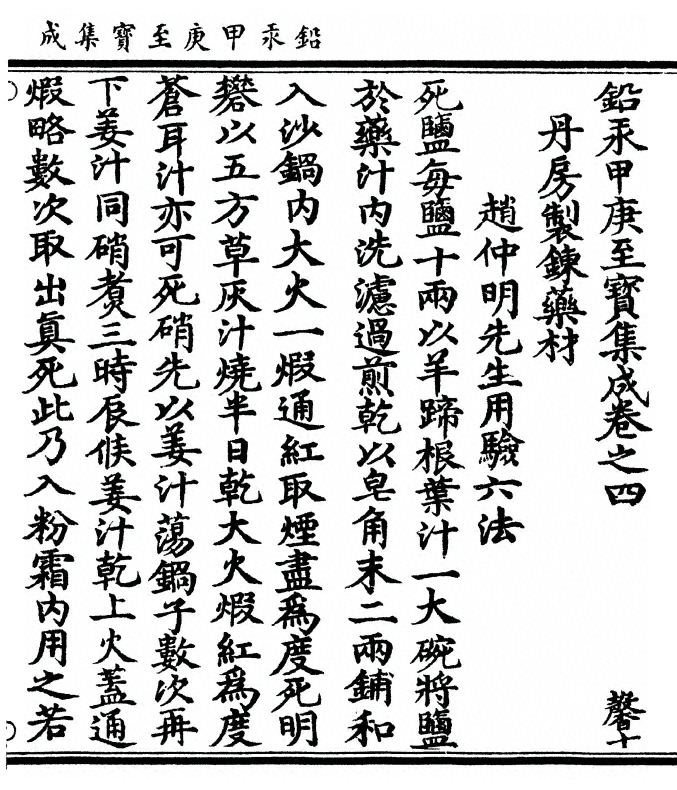 鉛汞甲庚至寶集成
鉛汞甲庚至寶集成卷之四 馨十
丹房製鍊藥材
趙仲明先生用驗六法
死鹽每鹽十兩以羊蹄根葉汁一大碗將鹽
於藥汁內洗濾過煎乾以皂角末二兩鋪和
入沙鍋內大火一煆通紅取煙盡爲度死明
礬以五方草灰汁燒半日乾大火煆紅爲度
蒼耳汁亦可死硝先以姜汁蕩鍋子數次再
下姜汁同硝煑三時辰候姜汁乾上火蓋通
煆略數次取出眞死此乃入粉霜內用之若